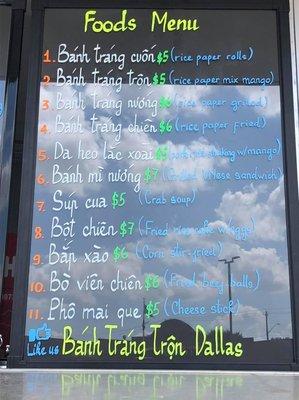 Foods Menu
1. Bánh tráng cuốn $5 (rice paper rolls)
2. Bánh tráng trộn $5 (rice paper mix mango)
3. Bánh tráng nướng $6 (rice paper grilled)
4. Bánh tráng chiên $6 (rice paper fried)
5. Da heo lắc xoài $5 w/mango)
6. Bánh mì nướng $7 (Grilled sandwich)
7. Súp cua $5 (Crab soup)
8. Bột chiên $7 (Fried rice cake w/eggs)
9. Bắp xào $6 (Corn stir-fried)
10. Bò viên chiên $6 (Fried beef balls)
11. Phô mai que $5 (Cheese stick)
Like us Bánh Tráng Trộn Dallas